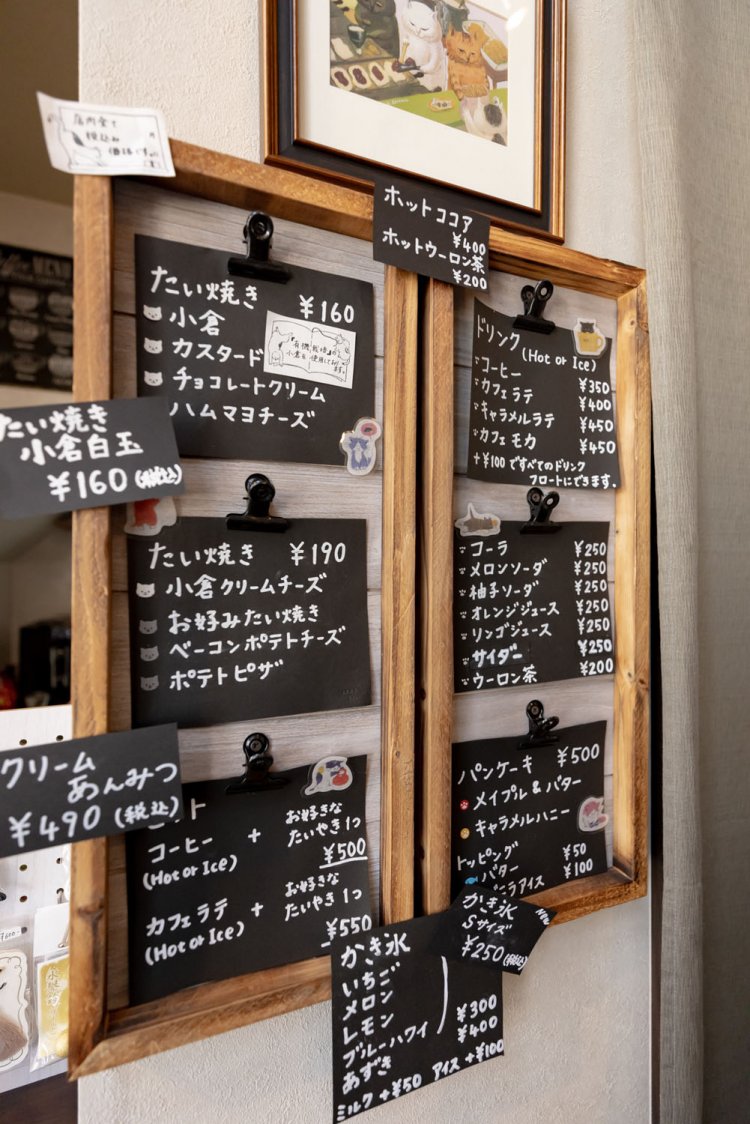 店内全て
税込み
価格です。
ホットココア
¥400
ホットウーロン茶
¥200
たい焼き ¥160
小倉
カスタード
チョコレートクリーム
ハムマヨチーズ
『有機栽培』の
小倉を使用しており
ます。
たい焼き
小倉白玉
¥160(税込)
たい焼き ¥190
小倉クリームチーズ
お好みたい焼き
ベーコンポテトチーズ
ポテトピザ
クリーム
あんみつ
¥490(税込)
コーヒー + お好きな
(Hot or Ice) たいやき1つ
¥500
カフェラテ + お好きな
(Hot or Ice) たいやき1つ
¥550
ドリンク(Hot or Ice)
コーヒー ¥350
カフェラテ ¥400
キャラメルラテ ¥450
カフェモカ ¥450
+¥100ですべてのドリンク
フロートにできます。
コーラ ¥250
メロンソーダ ¥250
柚子ソーダ ¥250
オレンジジュース ¥250
リンゴジュース ¥250
サイダー ¥250
ウーロン茶 ¥200
パンケーキ ¥500
メイプル&バター
キャラメルハニー
トッピング
バター ¥50
ニラアイス ¥100
かき氷
Sサイズ
¥250(税込)
かき氷
いちご
メロン
レモン
ブルーハワイ ¥300
あずき ¥400
ミルク+¥50 アイス+¥100